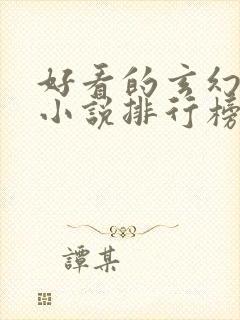 好看的玄幻
小说排行榜
譚某